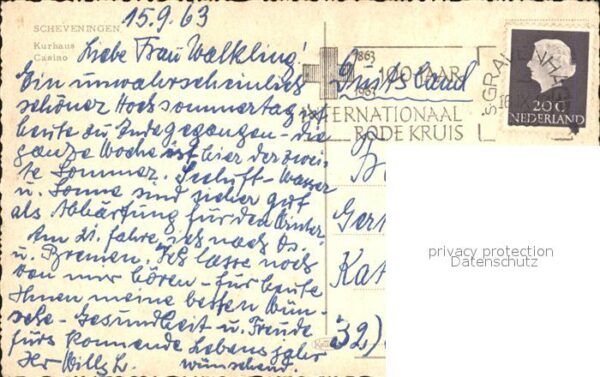 15.9.63
SCHEVENINGEN,
Kurhaus
Casino
Liebe Frau Walkling!
Ein unwahrscheinlich
schöner Hochsommertag ist
heute zu Ende gegangen - die
ganze Woche ist hier der zwei-
te Sommer. Seeluft - Wasser
u. Sonne sind sicher gut
als Abhärtung für den Winter.
Am 21. fahre ich nach
u. Bremen. Ich lasse noch
von mir hören - für heute
Ihnen meine besten Wün-
sche - Gesundheit u. Freude
fürs kommende Lebensjahr
Ihr Willy L. wünschend.
1863
100 JAAR
1963
INTERNATIONAAL
RODE KRUIS
'S GRAVENHAGE
20 C
NEDERLAND
Duitsland
Gert
Kat
32)
privacy protection
Datenschutz